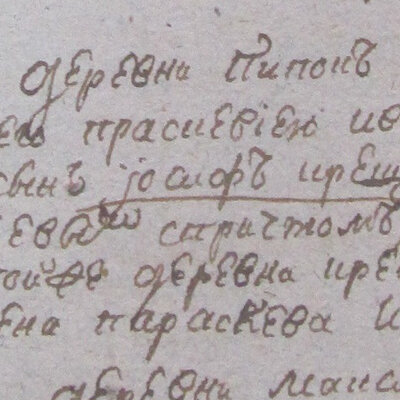 деревни Пипонъ
ею прасиевiею ив
сынъ јосифъ крещ
еви спричтомъ
той же деревни кре
ена параскева и
деревни